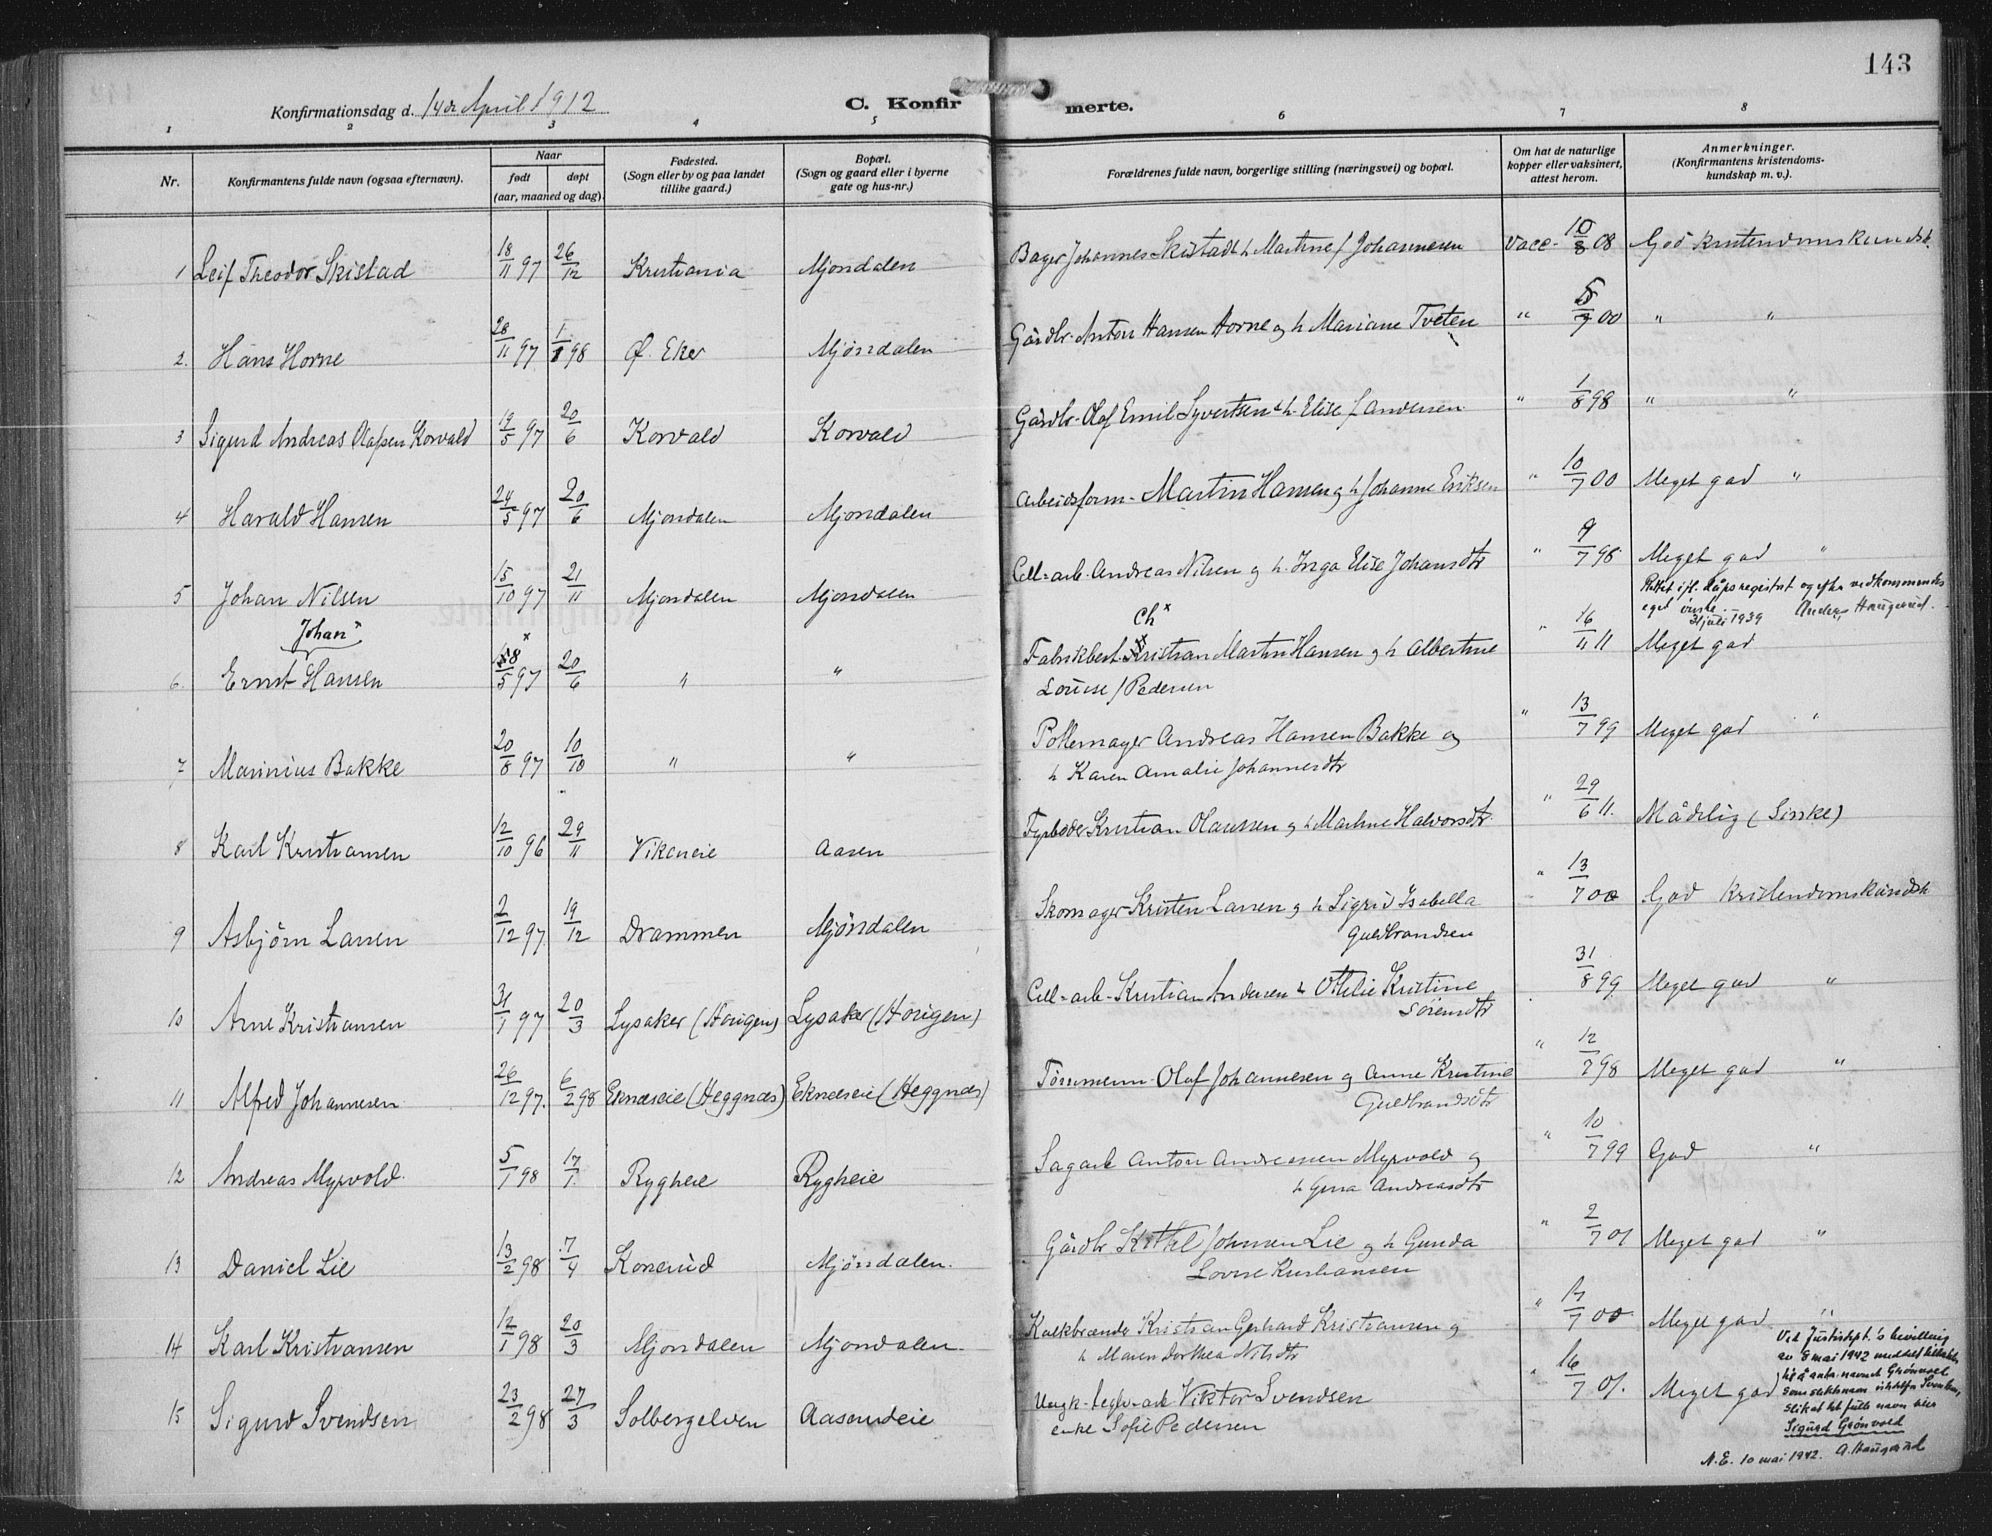 143
Konfirmationsdag d. 14de April 1912
C. Konfirmerte.
1 2 3 4 5 6 7 8
Nr.
Konfirmantens fulde navn (ogsaa efternavn).
Naar
født døpt
(aar, maaned og dag).
Fødested.
(Sogn eller by og paa landet
tillike gaard.)
Bopæl.
(Sogn og gaard eller i byerne
gate og hus-nr.)
Forældrenes fulde navn, borgerlige stilling (næringsvei) og bopæl.
Om hat de naturlige
kopper eller vaksinert,
attest herom.
Anmerkninger.
(Konfirmantens kristendoms-
kundskap m. v.).
1 Leif Theodor Skistad 18/11 97 26/12 Kristiania Mjøndalen Bager Johannes Skistad & h Martine f Johannesen Vacc. 10/8 08 God kristendomskundsk.
2. Hans Horne 28/11 97 1/1 98 Ø. Eker Mjøndalen Gårdbr. Anton Hansen Horne og h Mariane Tveten " 5/7 00 " "
3 Sigurd Andreas Olafsen Korvald 19/5 97 20/6 Korvald Korvald Gårdbr. Olaf Emil Syvertsen & h. Elise f Andersen " 1/8 98 " "
4 Harald Hansen 24/5 97 20/6 Mjøndalen Mjøndalen Arbeidsform. Martin Hansen og h Johanne Eriksen " 10/7 00 Meget god "
5 Johan Nilsen 15/10 97 21/11 Mjøndalen Mjøndalen Cell-arb. Andreas Nilsen og h. Inga Elise Johansdtr " 9/7 98 Meget god "
Rettet ifl. dåpsregistret og efter vedkommendes
eget ønske. 31 juli 1939 Anders Haugerud.
Johan"
Ch x
6. Ernst Hansen 18/5 97 x 20/6 " " Fabrikbest. Kristian Martin Hansen og h Albertine
Louise f Pedersen " 16/4 11 Meget god
7 Marinius Bakke 20/8 97 10/10 " " Pottemager Andreas Hansen Bakke og
h Karen Amalie Johannesdtr " 13/7 99 Meget god "
8 Karl Kristiansen 12/10 96 29/11 Vikeneie Aasen Fyrbøder Kristian Olaussen og h Martine Halvorsdtr. " 29/6 11. Mådelig (Sinke)
9 Asbjörn Larsen 2/12 97 19/12 Drammen Mjøndalen Skomager Kristen Larsen og h Sigrid Isabella
Guldbrandsen " 13/7 00 God kristendomskundsk
10 Arne Kristiansen 31/1 97 20/3 Lysaker (Horigen) Lysaker (Horigen) Cell-arb- Kristian Andersen h Ottilie Kristine
Sörensdtr 31/8 99 Meget god "
11 Alfred Johannesen 26/12 97. 6/2 98 Ekneseie (Heggnæs) Ekneseie (Heggnæs) Tömmerm. Olaf Johannesen og Anne Kristine
Guldbrandsdtr " 12/7 98 Meget god "
12 Andreas Myrvold. 5/1 98 17/7 Rygheie Rygheie Sagarb Anton Andreassen Myrvold og
h Gina Andreasdtr " 10/7 99 God "
13 Daniel Lie 13/2 98 7/4 Konerud Mjøndalen. Gårdbr Kittel Johnsen Lie og h Gunda
Lovise Kristiansen " 2/7 01 Meget god "
14 Karl Kristiansen 12/1 98 20/3 Mjøndalen Mjøndalen. Kalkbrænder Kristian Gerhard Kristiansen og
h Maren Dorthea Nilsdtr " 17/7 00 Meget god "
15 Sigurd Svendsen 23/2 98 27/3 Solbergelven Aasemdeie Viktor Svendsen
enke Sofie Pedersen " 16/7 01. Meget god
Ved Justisdept.'s bevilling
av 8 mai 1942 meddelt tillatelse
til å anta navnet Grönvold
som slektsnavn istedenfor Svendsen,
slik at det fulle navn blir
Sigurd Grönvold
N.E. 10 mai 1942. A. Haugerud